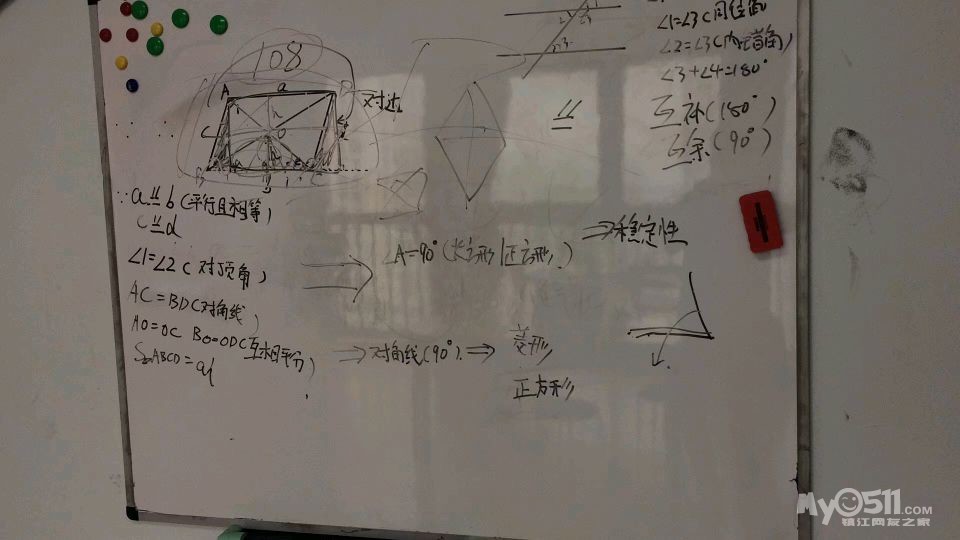 108
A a D 对边
∠1=∠3(同位角)
∠2=∠3(内错角)
∠3+∠4=180°
互补(180°)
互余(90°)
∵ a⫫b(平行且相等)
c⫫d
∠1=∠2(对顶角)
AC=BD(对角线)
AO=OC BO=ODC互相平分)
⇒对角线(90°)⇒
菱形
正方形
∠A=90°(长方形/正方形)
⇒稳定性
My0511.COM
镇江网友之家